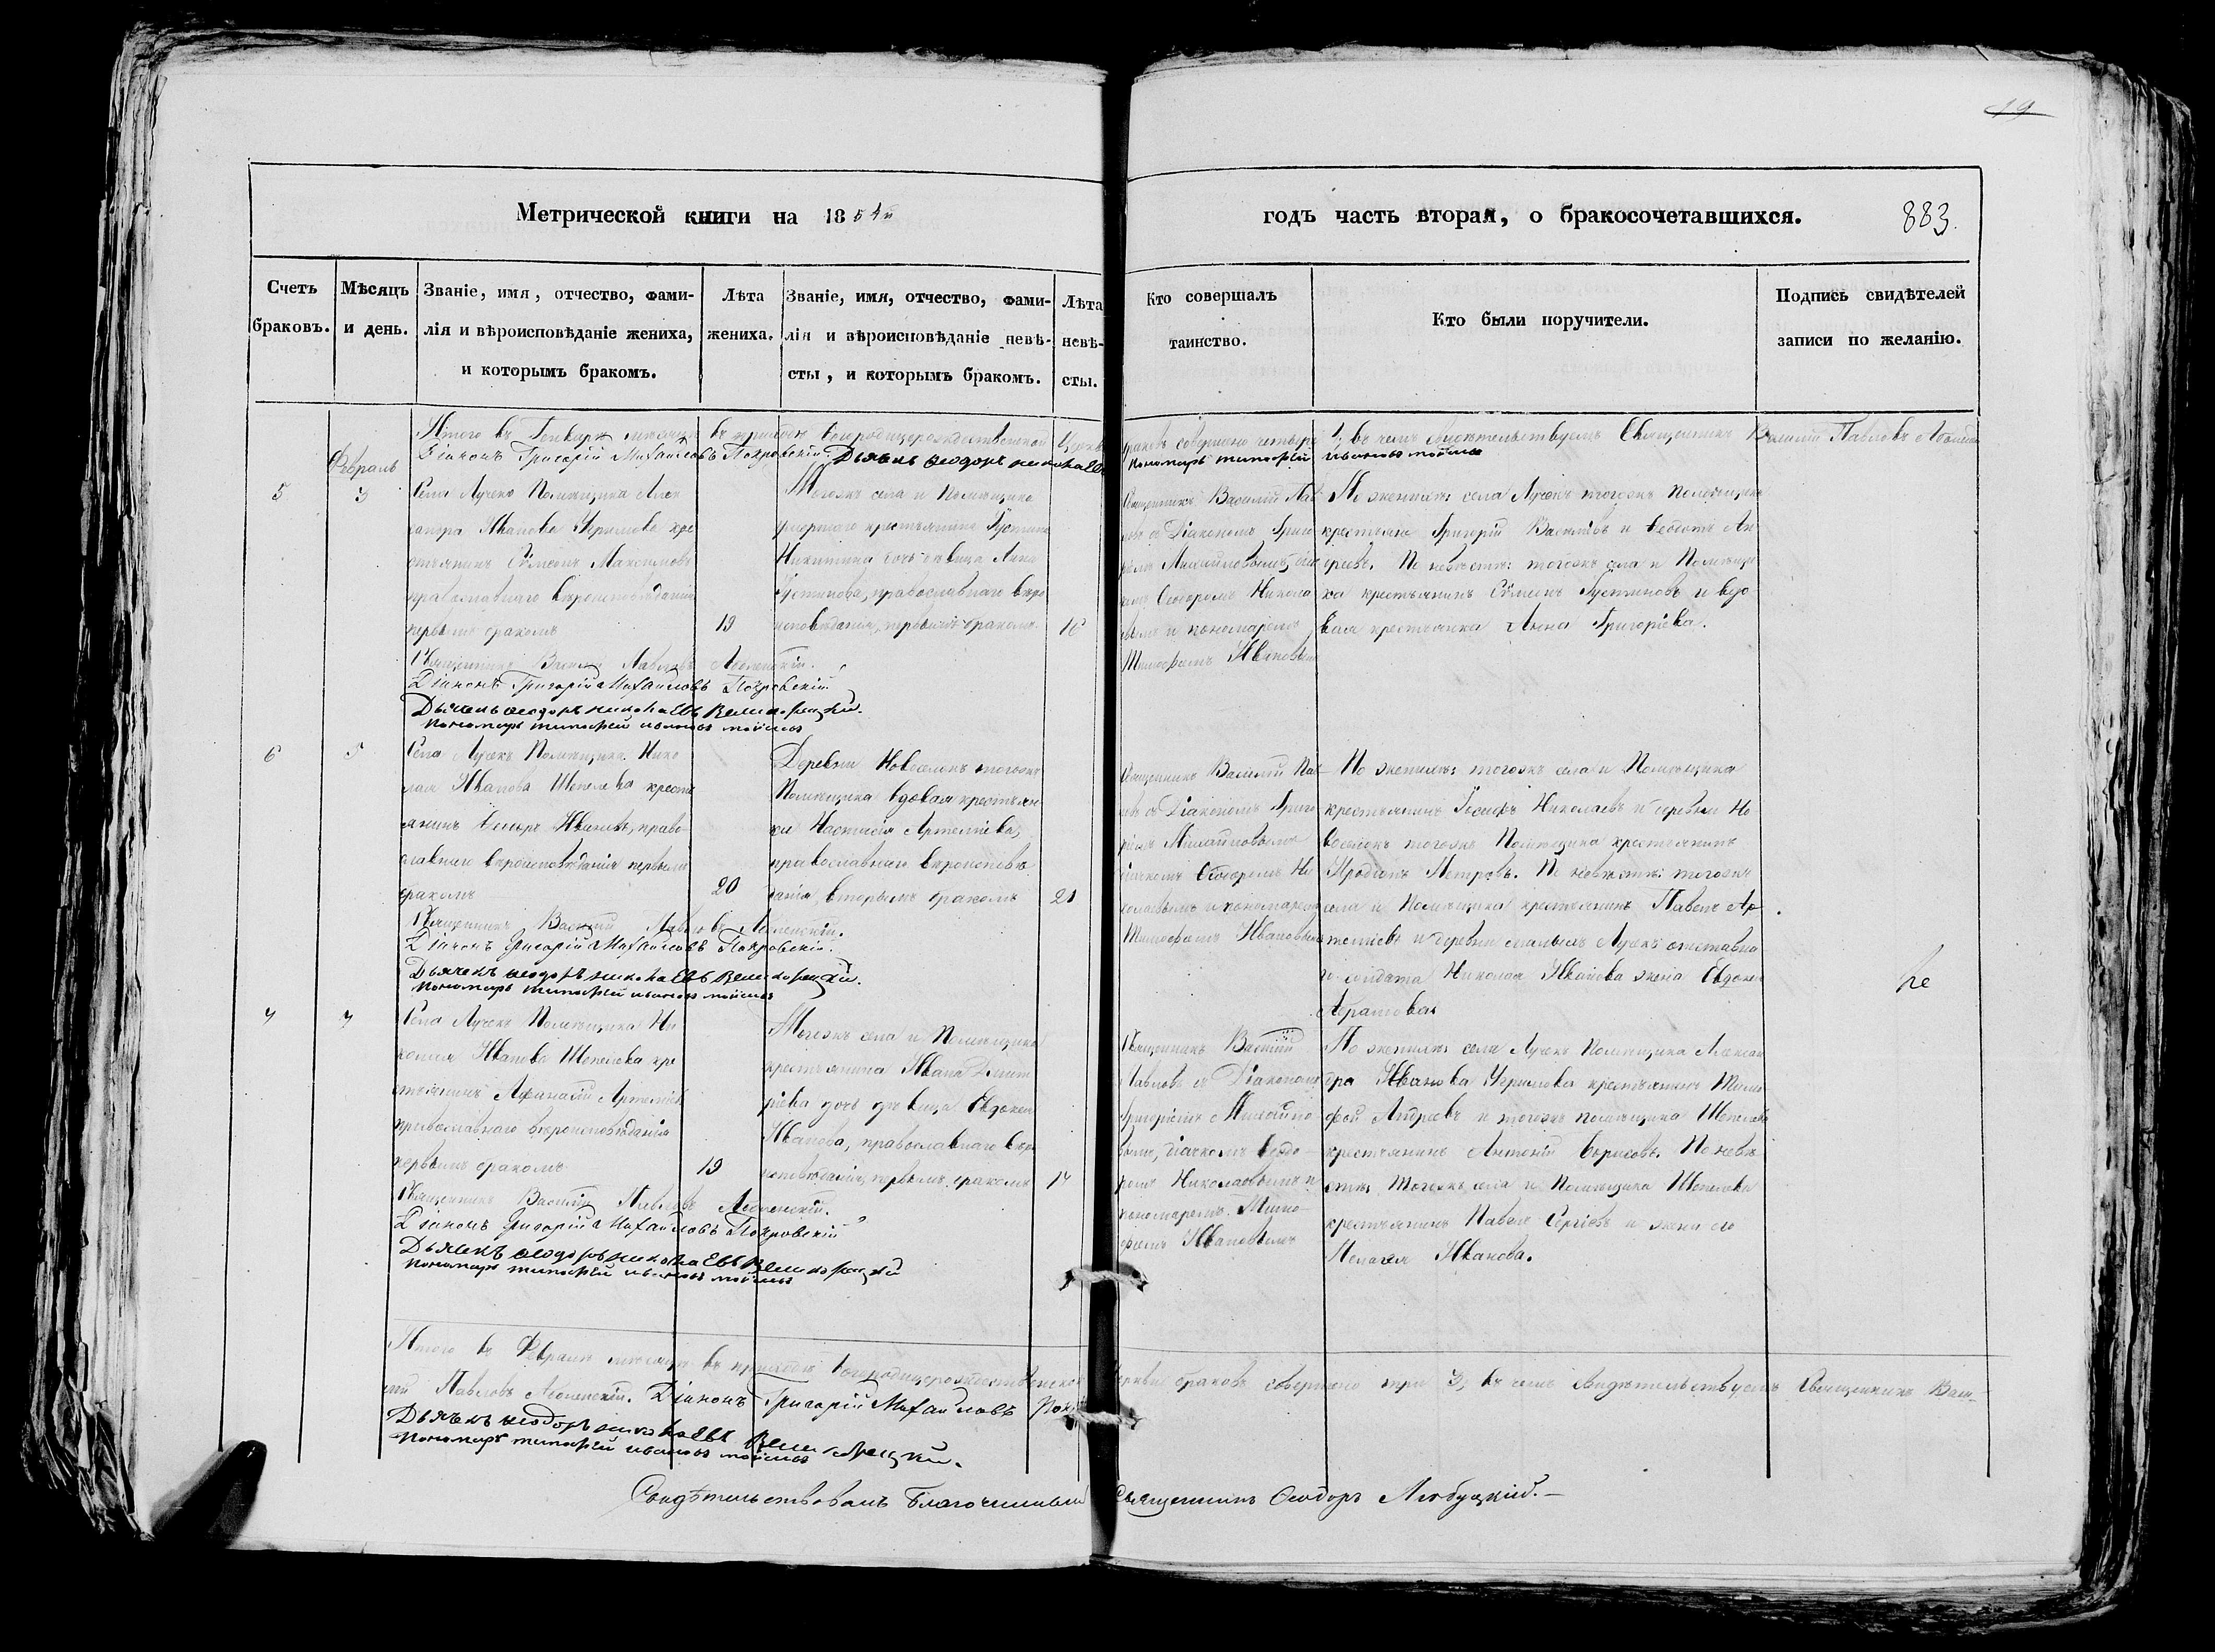 19
Метрической книги на 1854й
годъ часть вторая, о бракосочетавшихся.
883.
Счетъ браковъ.
Мѣсяцъ и день.
Званіе, имя, отчество, фами-
лія и вѣроисповѣданіе жениха,
и которымъ бракомъ.
Лѣта
жениха.
Званіе, имя, отчество, фами-
лія и вѣроисповѣданіе невѣ-
сты, и которымъ бракомъ.
Лѣта
невѣ-
сты.
Кто совершалъ
таинство.
Кто были поручители.
Подпись свидѣтелей
записи по желанію.
Итого въ Генварѣ мѣсяцѣ въ приходѣ Богородицерождественской
браковъ совершено четыре 4, въ чемъ свидѣтельствуемъ Священникъ Василій Павловъ
Діаконъ Григорій Михайловъ Покровскій. Дьячекъ Ѳеодоръ Николаевъ
Пономарь Тимофей Ивановъ
Февраль
5
3
Села Лучекъ Помѣщика Алек
сандра Иванова Чернилова кре
стьянинъ Сѵмеонъ Максимовъ
православнаго вѣроисповѣданія
первымъ бракомъ
19
Тогожъ села и Помѣщика
умершаго крестьянина Іустина
Никитина дочь дѣвица Анна
Іустинова, православнаго вѣро
исповѣданія, первымъ бракомъ
16
Священникъ Василій Пав
ловъ съ Діакономъ Григо
ріемъ Михайловымъ, дьяч
комъ Ѳеодоромъ Никола
евымъ и пономаремъ
Тимофеемъ Ивановымъ
По женихѣ: села Лучекъ тогожъ помѣщика
крестьяне Григорій Васильевъ и Ѳеодотъ Ан
дреевъ. По невѣстѣ: тогожъ села и Помѣщи
ка крестьянинъ Сѵмеонъ Іустиновъ и вдо
вая крестьянка Анна Григорьева.
Священникъ Василій Павловъ
Діаконъ Григорій Михайловъ Покровскій.
Дьячекъ Ѳеодоръ Николаевъ Великорецкій.
Пономарь Тимофей Ивановъ
6
5
Села Лучекъ Помѣщика Нико
лая Иванова Шепелева кресть
янинъ Ѳеодоръ Ивановъ, право
славнаго вѣроисповѣданія первымъ
бракомъ
20
Деревни Новоселокъ тогожъ
Помѣщика вдовая крестьян
ка Настасія Артемьева,
православнаго вѣроисповѣ
данія, вторымъ бракомъ
21
Священникъ Василій Пав
ловъ съ Діакономъ Григо
ріемъ Михайловымъ
дьячкомъ Ѳеодоромъ Ни
колаевымъ и пономаремъ
Тимофеемъ Ивановымъ
По женихѣ: тогожъ села и Помѣщика
крестьянинъ Іосифъ Николаевъ и деревни Но
воселокъ тогожъ Помѣщика крестьянинъ
Иродіонъ Петровъ. По невѣстѣ: тогожъ
села и Помѣщика крестьянинъ Павелъ Ар
теміевъ и деревни Лучекъ отставна
го солдата Николая Иванова жена Евдокія
Абрамова
Священникъ Василій Павловъ
Діаконъ Григорій Михайловъ Покровскій.
Дьячекъ Ѳеодоръ Николаевъ Великорецкій.
Пономарь Тимофей Ивановъ
7
7
Села Лучекъ Помѣщика Ни
колая Иванова Шепелева кре
стьянинъ Афанасій Артеміевъ
православнаго вѣроисповѣданія
первымъ бракомъ
19
Тогожъ села и Помѣщика
крестьянина Ивана Дмит
ріева дочь дѣвица Евдокія
Иванова, православнаго вѣро
исповѣданія, первымъ бракомъ
17
Священникъ Василій
Павловъ съ Діакономъ
Григоріемъ Михайло
вымъ, дьячкомъ Ѳеодо
ромъ Николаевымъ и
пономаремъ Тимо
феемъ Ивановымъ
По женихѣ: села Лучекъ Помѣщика Алексан
дра Иванова Чернилова крестьянинъ Тимо
фей Андреевъ и тогожъ помѣщика Шепелева
крестьянинъ Антоній Борисовъ. По невѣ
стѣ: Тогожъ села и Помѣщика Шепелева
крестьянинъ Павелъ Сергіевъ и жена его
Пелагея Иванова.
Священникъ Василій Павловъ
Діаконъ Григорій Михайловъ Покровскій
Дьячекъ Ѳеодоръ Николаевъ Великорецкій
Пономарь Тимофей Ивановъ
Итого въ Февралѣ мѣсяцѣ въ приходѣ Богородицерождественской
церкви браковъ совершено три 3, въ чемъ свидѣтельствуемъ Священникъ Васи-
лій Павловъ Діаконъ Григорій Михайловъ
Дьячекъ Ѳеодоръ Николаевъ Великорецкій.
Пономарь Тимофей Ивановъ
Свидѣтельствовалъ Благочинный Священникъ Ѳеодоръ Любуцкій.